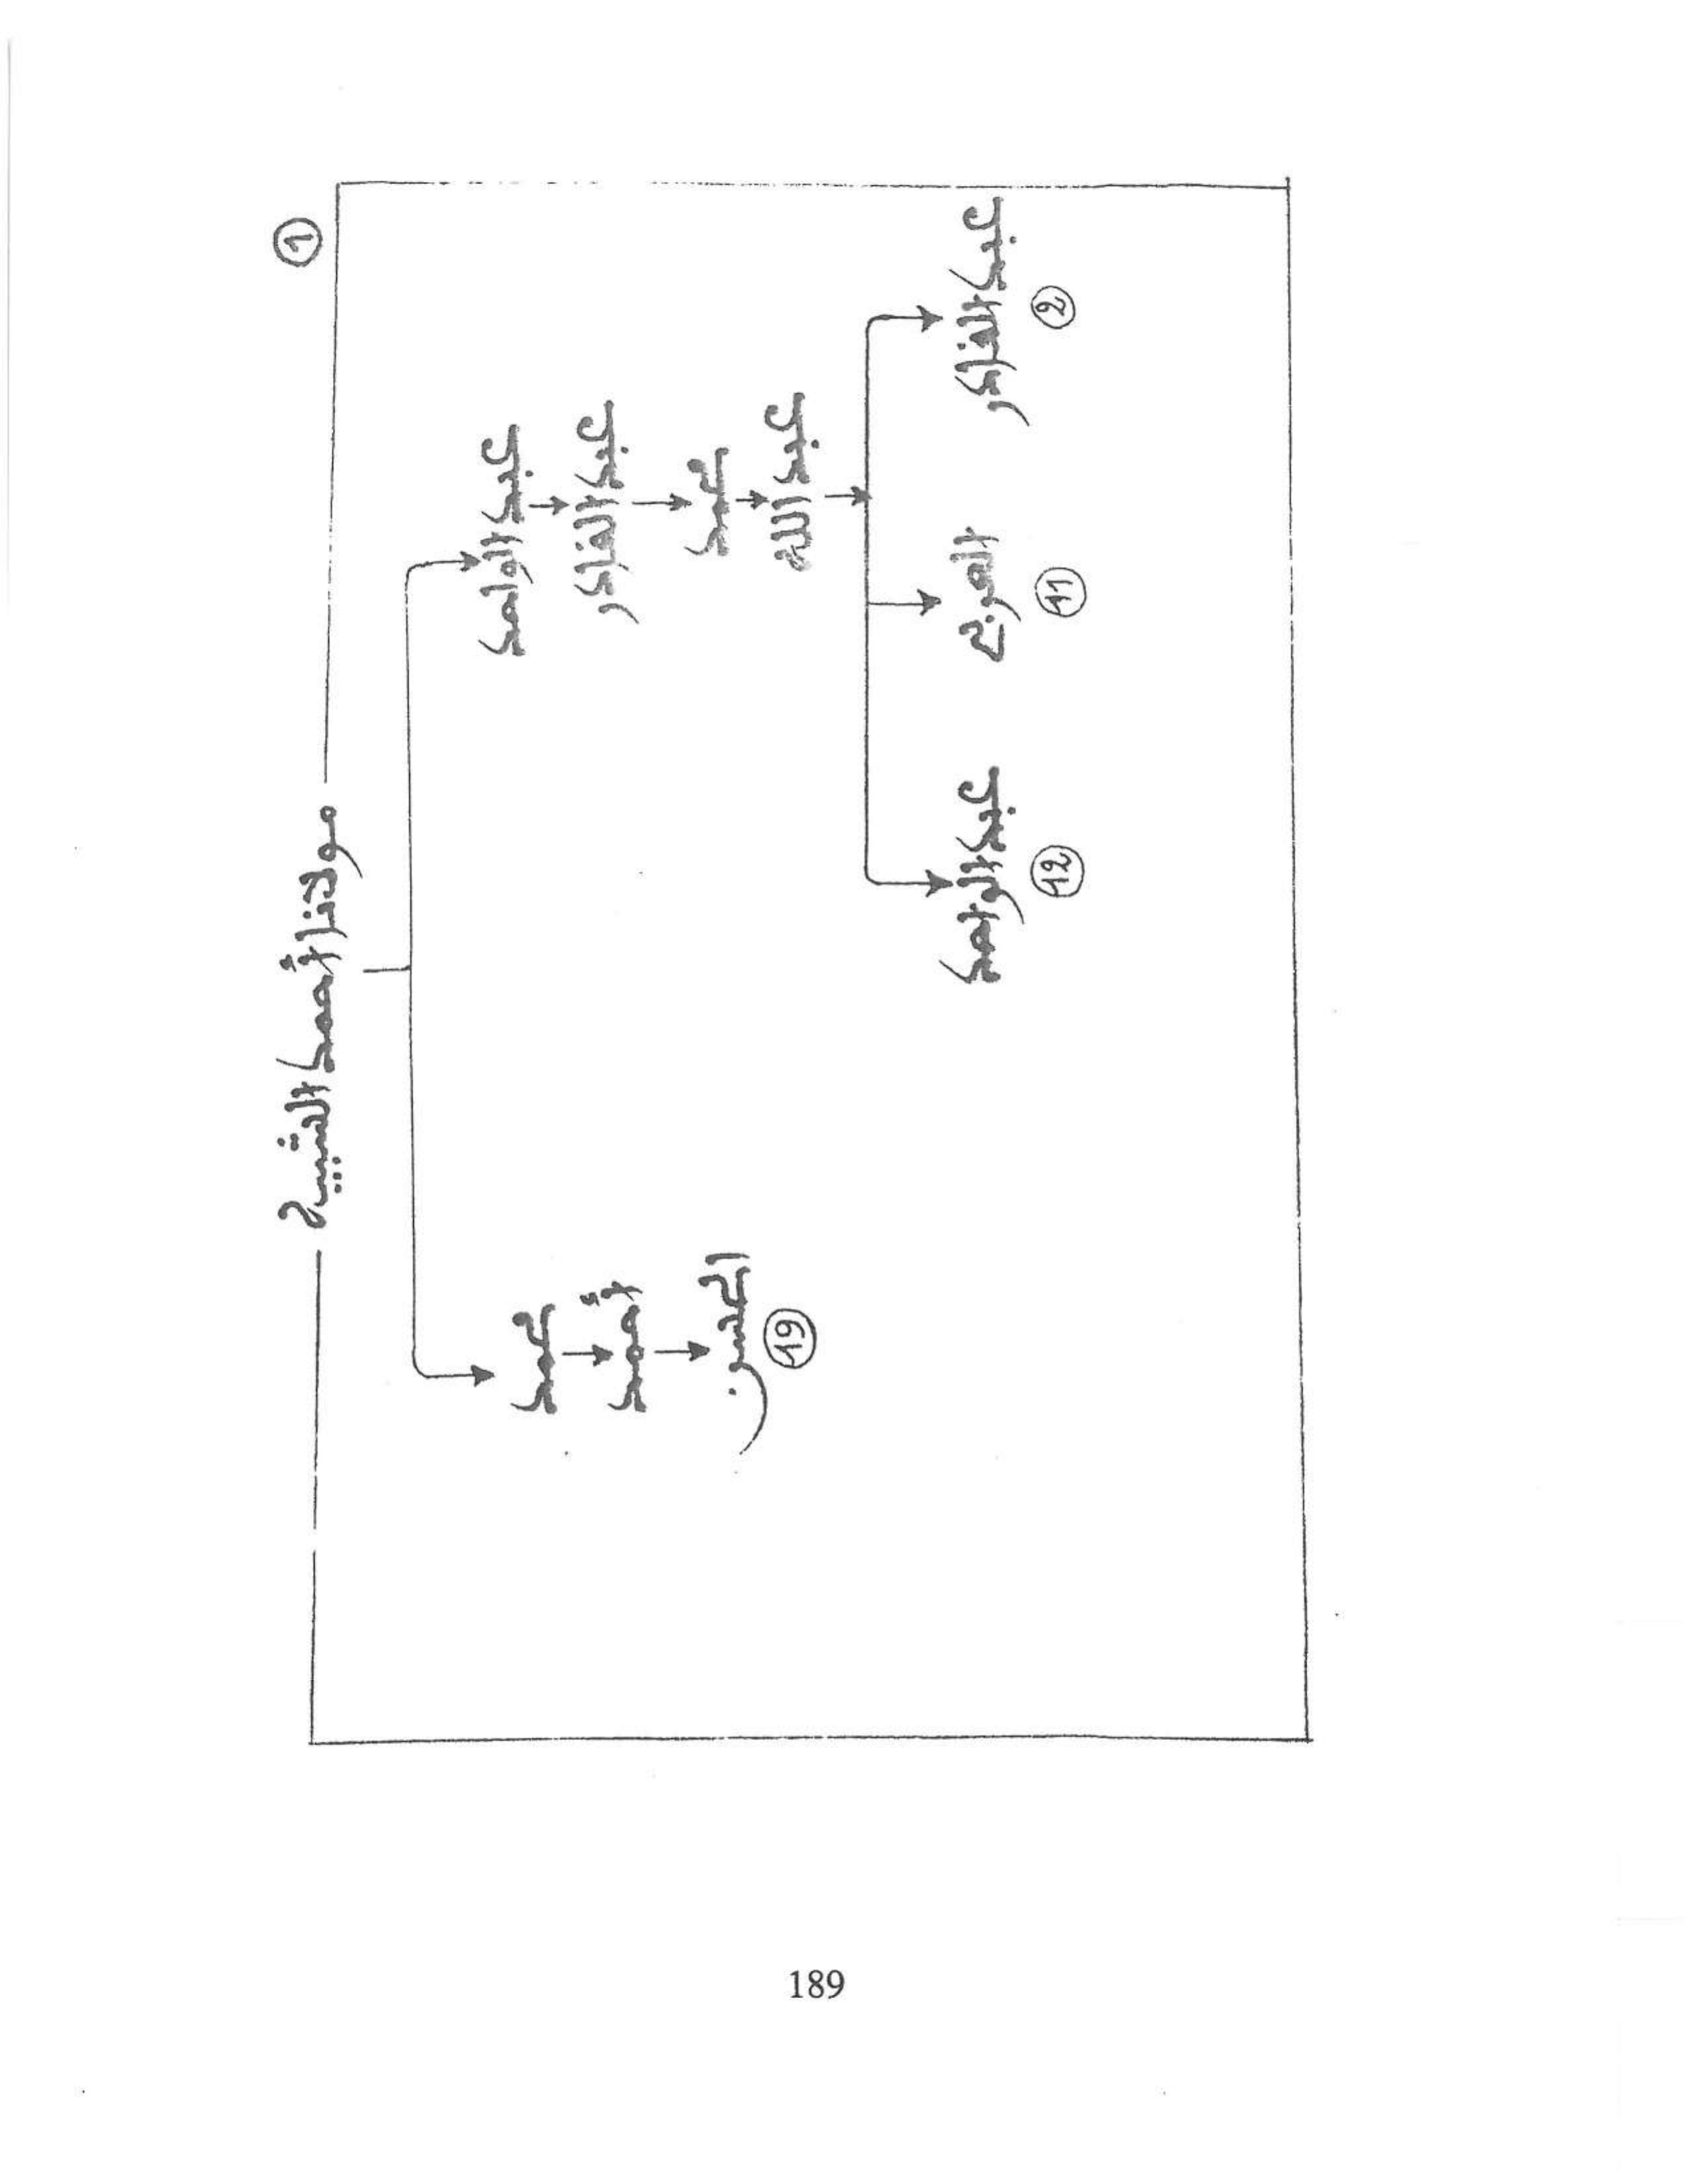 ①
مولانا أحمد الشبيه
عبد الواحد
عبد القادر
محمد
عبد الله
عبد القادر
②
العربي
⑪
عبد الواحد
⑫
محمد
أحمد
الحسن
⑲
189